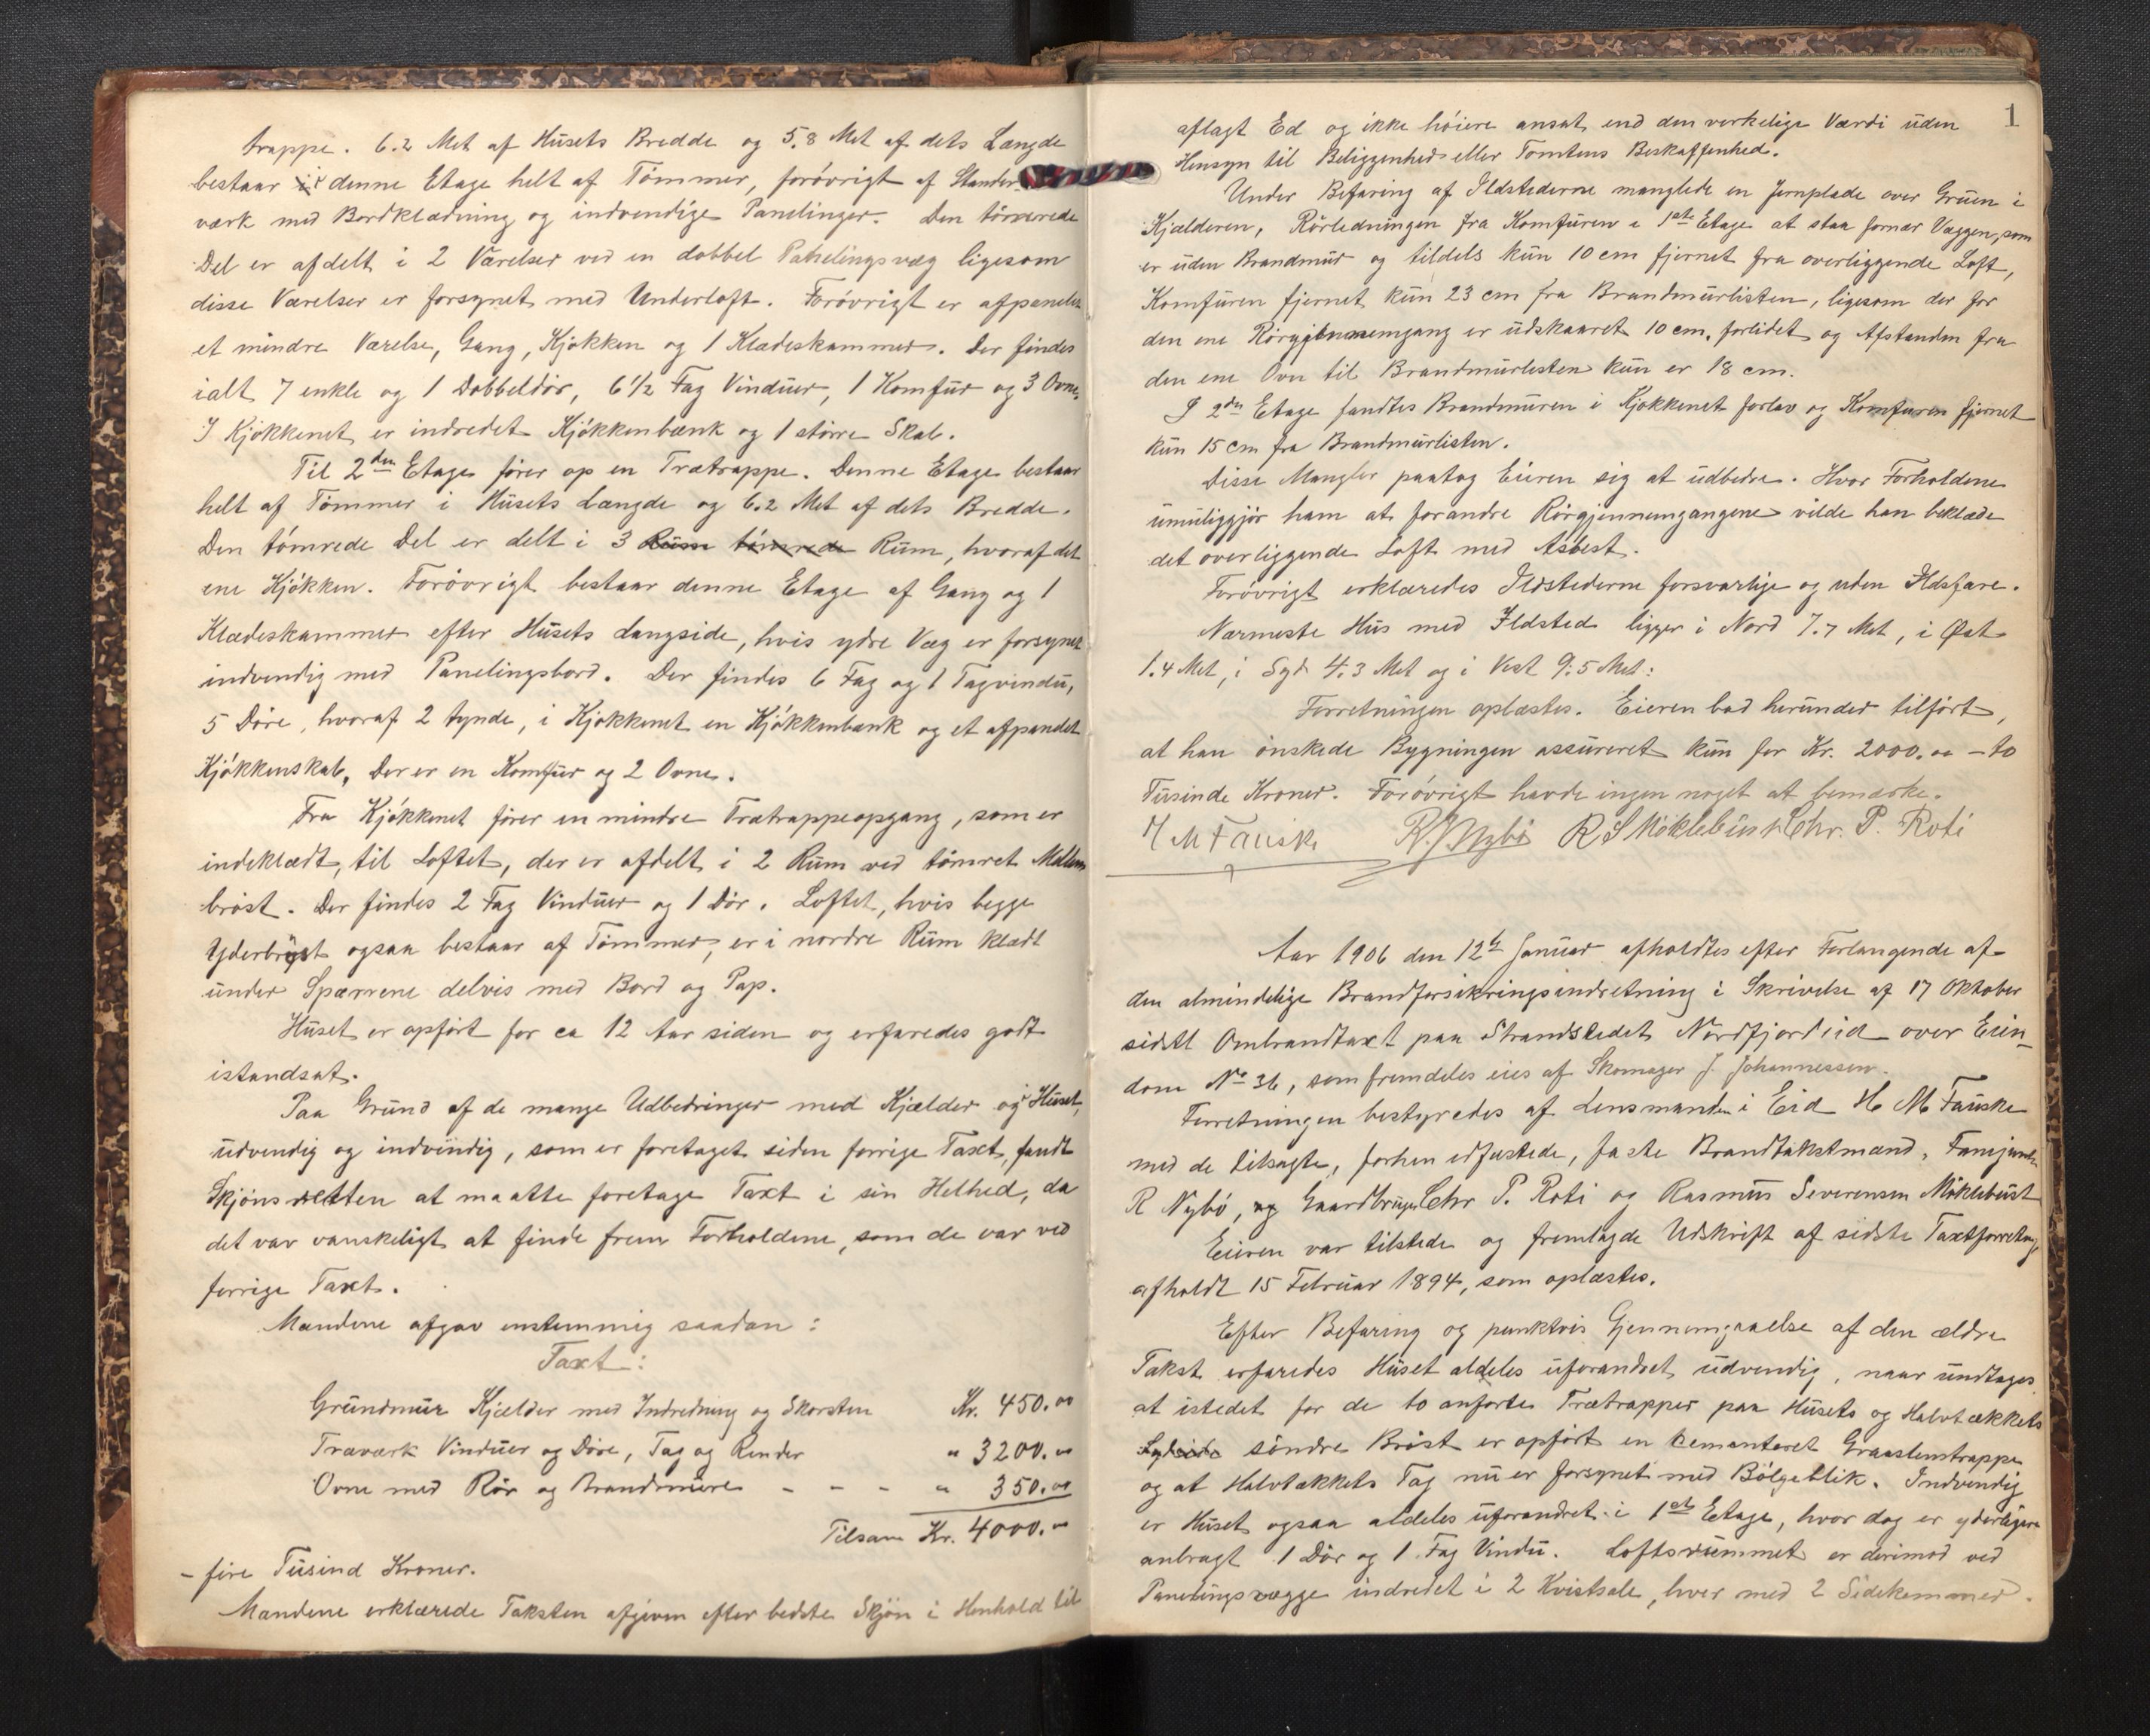 trappe. 6.2 Met af Husets Bredde og 5.8 Met af dets Længde
bestaar i denne Etage helt af Tømmer, forøvrigt af Stander
værk med Bordklædning og indvendige Panelinger. Den tømrede
Del er afdelt i 2 Værelser ved en dobbel Panelingsvæg ligesom
disse Værelser er forsynet med Underloft. Forøvrigt er afpanelet
et mindre Værelse, Gang, Kjøkken og 1 Klædeskammer. Der findes
ialt 7 enkle og 1 Dobbeldør, 6 1/2 Fag Vinduer, 1 Komfur og 3 Ovne.
I Kjøkkenet er indredet Kjøkkenbænk og 1 større Skab.
Til 2den Etage fører op en Trætrappe. Denne Etage bestaar
helt af Tømmer i Husets Længde og 6.2 Met af dets Bredde.
Den tømrede Del er delt i 3 Rum tømrede Rum, hvoraf det
ene Kjøkken. Forøvrigt bestaar denne Etage af Gang og 1
Klædeskammer efter Husets Langside, hvis ydre Væg er forsynet
indvendig med Panelingsbord. Der findes 6 Fag og 1 Tagvindu,
5 Døre, hvoraf 2 tynde, i Kjøkkenet en Kjøkkenbænk og et afpanelet
Kjøkkenskab, Der er en Komfur og 2 Ovne.
Fra Kjøkkenet fører en mindre Trætrappeopgang, som er
indeklædt, til Loftet, der er afdelt i 2 Rum ved tømret Mellem
brøst. Der findes 2 Fag Vinduer og 1 Dør. Loftet, hvis begge
Yderbrøst ogsaa bestaar af Tømmer, er i nordre Rum klædt
under Spærrene delvis med Bord og Pap.
Huset er opført for ca 12 Aar siden og erfaredes godt
istandsat.
Paa Grund af de mange Udbedringer med Kjælder og Huset,
udvendig og indvendig, som er foretaget siden forrige Taxt, fandt
Skjønsretten at maatte foretage Taxt i sin Helhed, da
det var vanskeligt at finde frem Forholdene, som de var ved
forrige Taxt.
Mændene afgav enstemmig saadan:
Taxt:
Grundmur Kjælder med Indredning og Skorsten Kr. 450.00
Træværk Vinduer og Døre, Tag og Render " 3200.00
Ovne med Rør og Brandmure - - - " 350.00
Tilsam Kr. 4000.00
- fire Tusind Kroner.
Mændene erklærede Taksten afgiven efter bedste Skjøn i Henhold til
1
aflagt Ed og ikke høiere ansat end den verkelige Værdi uden
Hensyn til Beliggenhed eller Tomtens Beskaffenhed.
Under Befaring af Ildstederne manglede en Jernplade over Gruen i
Kjælderen, Rørledningen fra Komfuren i 1ste Etage at staa for nær Væggen, som
er uden Brandmur og tildels kun 10 cm fjernet fra overliggende Loft,
Komfuren fjernet kun 23 cm fra Brandmurlisten, ligesom der for
den ene Rørgjennemgang er udskaaret 10 cm. forlidet og Afstanden fra
den ene Ovn til Brandmurlisten kun er 18 cm.
I 2den Etage fandtes Brandmuren i Kjøkkenet forlav og Komfuren fjernet
kun 15 cm fra Brandmurlisten.
Disse Mangler paatog Eieren sig at udbedre. Hvor Forholdene
umuliggjør ham at forandre Rørgjennemgangene vilde han beklæde
det overliggende Loft med Asbest.
Forøvrigt erklæredes Ildstederne forsvarlige og uden Ildsfare.
Nærmeste Hus med Ildsted ligger i Nord 7.7 Met, i Øst
1.4 Met, i Syd 4.3 Met og i Vest 9.5 Met:
Forretningen oplæstes. Eieren bad herunder tilført,
at han ønskede Bygningen assureret kun for Kr. 2000.00 - to
Tusinde Kroner. Forøvrigt havde ingen noget at bemærke.
H M Fauske R. J Nybø R S Møklebust Chr. P. Roti
Aar 1906 den 12te Januar afholdtes efter Forlangende af
den almindelige Brandforsikringsindretning i Skrivelse af 17 Oktober
sidstl Ombrandtaxt paa Strandstedet Nordfjordeid over Eien-
dom No 36, som fremdeles eies af Skomager J. Johannessen.
Forretningen bestyredes af Lensmanden i Eid H M Fauske
med de tilsagte, forhen edfæstede, faste Brandtakstmænd, Familjemænd
R Nybø, og Gaardbruger Chr P. Roti og Rasmus Severensen Møklebust
Eieren var tilstede og fremlagde Udskrift af sidste Taxtforretng,
afholdt 15 Februar 1894, som oplæstes.
Efter Befaring og punktvis Gjennemgaaelse af den ældre
Takst erfaredes Huset aldeles uforandret udvendig, naar undtages
at istedet for de to anførte Trætrapper paa Husets og Halvtækkets
Sydside søndre Brøst er opført en cementeret Graastenstrappe
og at Halvtækkets Tag nu er forsynet med Bølgeblik. Indvendig
er Huset ogsaa aldeles uforandret i 1ste Etage, hvor dog er yderligere
anbragt 1 Dør og 1 Fag Vindu. Loftsrummet er derimod ved
Panelingsvægge indredet i 2 Kvistsale, hver med 2 Sidekammer.